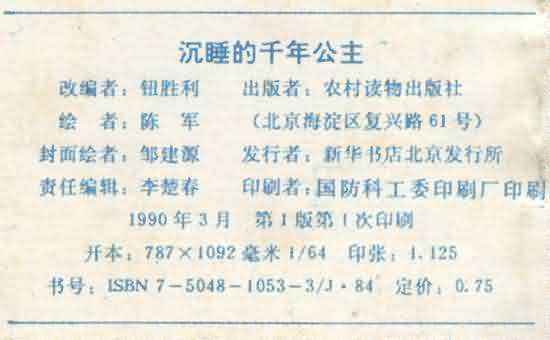 沉睡的千年公主
改编者：钮胜利 出版者：农村读物出版社
绘 者：陈 军 （北京海淀区复兴路61号）
封面绘者：邹建源 发行者：新华书店北京发行所
责任编辑：李楚春 印刷者：国防科工委印刷厂印刷
1990年3月 第1版第1次印刷
开本：787×1092毫米1/64 印张：1.125
书号：ISBN 7-5048-1053-3/J·84 定价：0.75